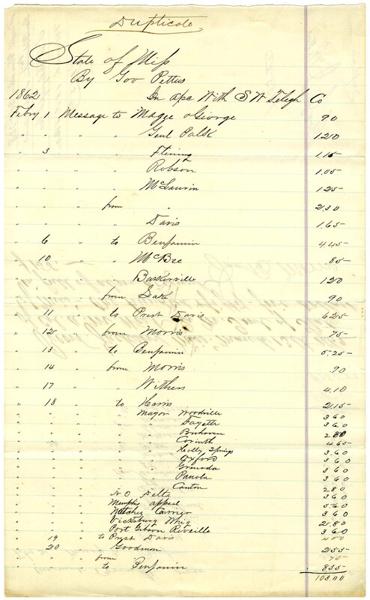 Duplicate
State of Miss
By Gov Pettus
1862 In a/c With S W Telegh Co
Feby 1 Message to Magee & George 90
" " " Genl Polk 1 20
" 3 " Fleming 1 15
" " " Robson 1.05
" " " McLaurin 1 25
" " from " 2.30
" " " Davis 1.65
" 6 " to Benjamin 4.45
" 10 " " McBee 85
" " " Baskerville 1 20
" " from 90
" 11 " to Prest Davis 6 25
" 12 " from Morris 75
" 13 " to Benjamin 5.25
" 14 " from Morris 90
" 17 " " Withers 4.10
" 18 " to Harris 2.15
" " " Mayor Woodville 3 60
" " " " Fayette 3 60
" " " " 2 80
" " " " Corinth 4 65
" " " " Holly Springs 3 60
" " " " Oxford 3 60
" " " " Grenada 3 60
" " " " Panola 3 60
" " " " Canton 2 80
" " " N O Delta 3 60
" " " Memphis Appeal 5 60
" " " Natchez Courier 3 60
" " " Vicksburg Whig 21 80
" " " Port Gibson Reveille 3 60
" 19 " to Prest Davis
" 20 " " Goodman 2 55
" " " from "
" " " to Benjamin 8 55
108.00